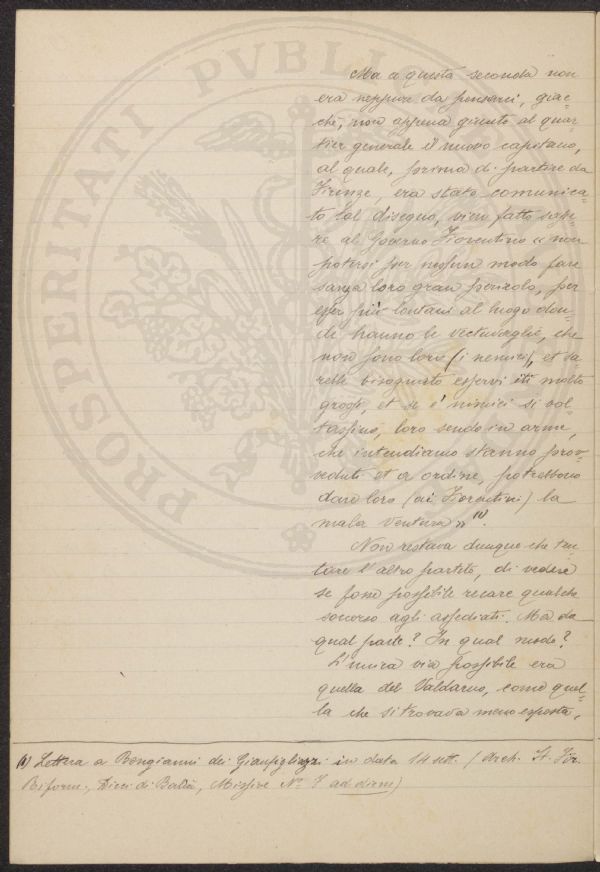 Ma a questa seconda non
era neppure da pensarci, giac-
chè, non appena giunto al quar-
tier generale il nuovo capitano,
al quale, prima di partire da
Firenze, era stato comunica-
to tal disegno, vien fatto sape-
re al Governo Fiorentino « non
potersi per nessun modo fare
sanza loro gran pericolo, per
esser più lontani al luogo don-
de hanno le vectuvaglie, che
non sono loro (i nemici), et sa-
rebbe bisognato esservi iti molto
grossi, et se e' nimici si vol-
tassino, loro sendo in arme,
che intendiamo stanno prov-
veduti et a ordine, potrebbono
dare loro (ai Fiorentini) la
mala ventura » (1).
Non restava dunque che ten-
tare l'altro partito, di vedere
se fosse possibile recare qualche
soccorso agli assediati. Ma da
qual parte? In qual modo?
L'unica via possibile era
quella del Valdarno, come quel-
la che si trovava meno esposta,
(1) Lettera a Bongianni dei Gianfigliazzi in data 14 sett. (Arch. St. Fior.
Riform., Dieci di Balìa, Missive N.º 7 ad diem)
PROSPERITATI PVBLICAE